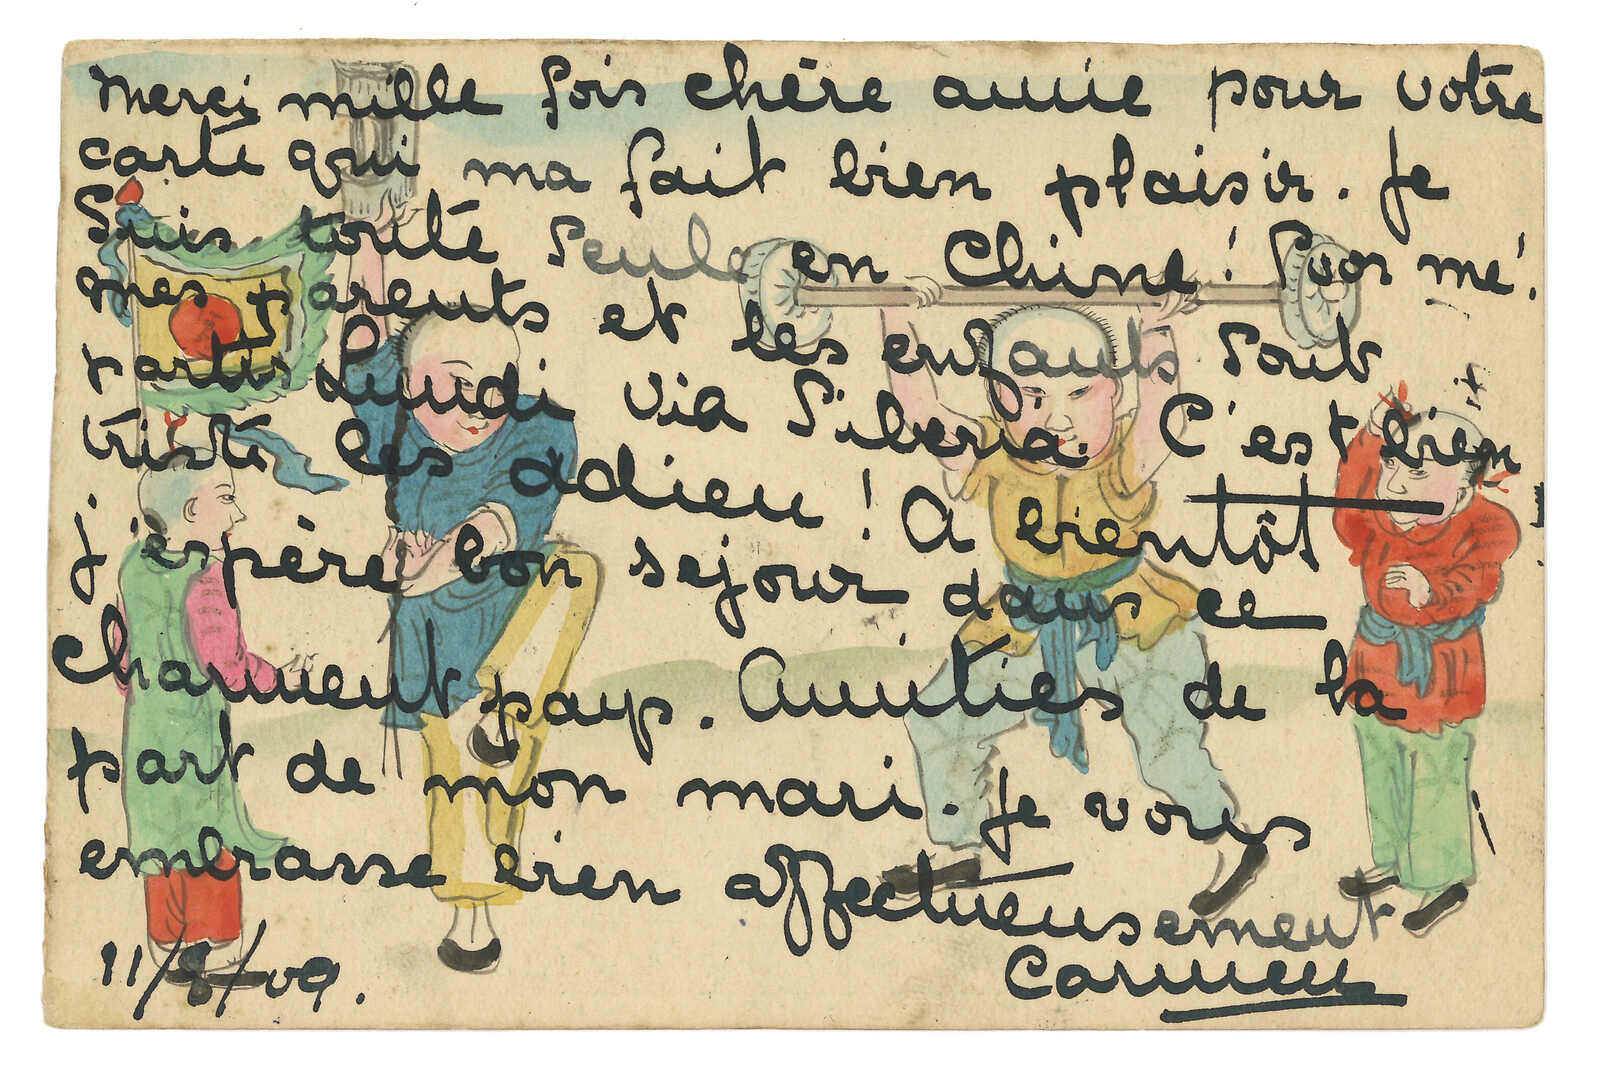 Merci mille fois chère amie pour votre
carte qui ma fait bien plaisir. Je
Suis toute Seule en Chine!
mes parents et les enfants sont
partis Lundi via Siberia. C'est bien
triste les adieu! A bientôt
j'espère bon sejour dans ce
charment pays. Amitiés de la
part de mon mari. Je vous
embrasse bien affectueusement
11/8/09. Carmen